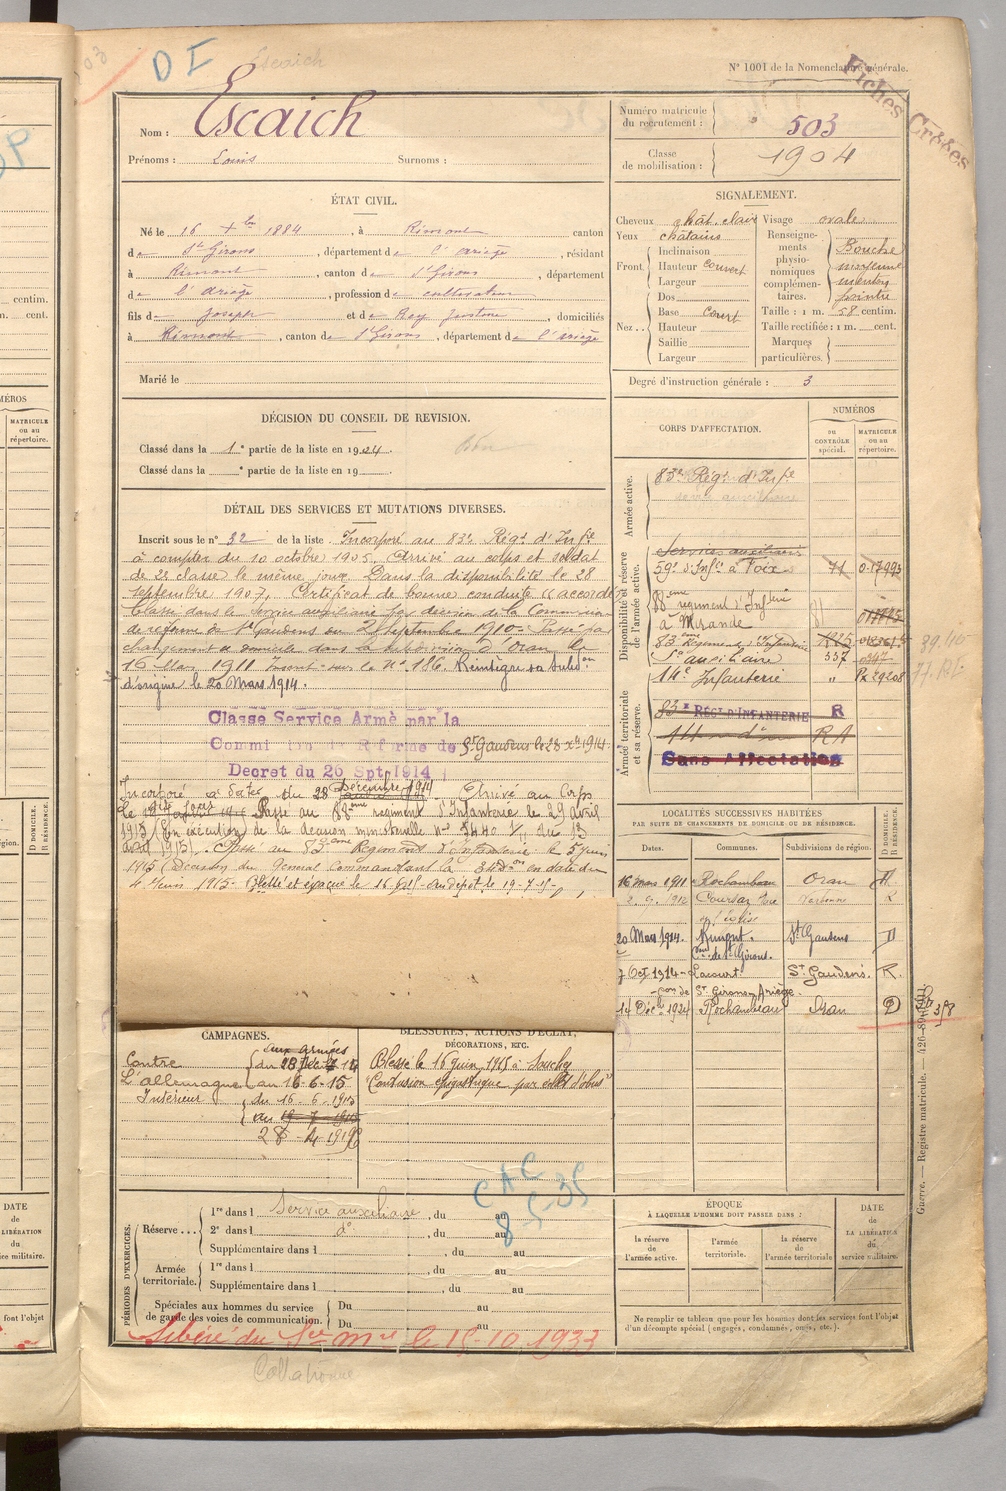 D I
Escaich
N° 1001 de la Nomenclature générale.
Fiches Créées
Nom : Escaich
Prénoms : Louis Surnoms :
Numéro matricule du recrutement : 503
Classe de mobilisation : 1904
ÉTAT CIVIL.
Né le 16 Xbre 1884, à Rimont canton
de St Girons, département de l'Ariège, résidant
à Rimont, canton de St Girons, département
de l'Ariège, profession de cultivateur
fils de Joseph et de Rey Justine, domiciliés
à Rimont, canton de St Girons, département de l'Ariège
Marié le
SIGNALEMENT.
Cheveux chât. clair Visage ovale
Yeux châtains
Front Inclinaison
Hauteur couvert
Largeur
Nez Dos
Base court
Hauteur
Saillie
Largeur
Renseignements physionomiques complémentaires. Bouche moyenne menton pointu
Taille : 1 m. 58 centim.
Taille rectifiée : 1 m. cent.
Marques particulières.
Degré d'instruction générale : 3
DÉCISION DU CONSEIL DE REVISION.
Classé dans la 1e partie de la liste en 1904.
Classé dans la e partie de la liste en 19
DÉTAIL DES SERVICES ET MUTATIONS DIVERSES.
Inscrit sous le n° 32 de la liste. Incorporé au 83e Régt d'Infie
à compter du 10 octobre 1905. Arrivé au corps et soldat
de 2e classe le même jour. Dans la disponibilité le 28
septembre 1907. Certificat de bonne conduite "accordé"
Classé dans le service auxiliaire par décision de la Commission
de réforme de St Gaudens du 2 septembre 1910. Passé par
changement de domicile dans la subdivision d'Oran le
16 Mars 1911 Inscrit sur le N° 186. Réintégré sa subdon
d'origine le 20 Mars 1914.
Classé Service Armé par la
Commission de Réforme de St Gaudens le 28 Xbre 1914.
Decret du 26 Spt 1914
Incorporé à dater du 28 Décembre 1914 Arrivé au Corps
le Passé au 88ème régiment d'Infanterie le 29 avril
1915 (En exécution de la décision ministérielle N° 3440 1/11 du 13
avril 1915). Passé au 83ème Régiment d'Infanterie le 5 juin
1915 (Décision du Général Commandant la 34e Don en date du
4 Juin 1915. Blessé et évacué le 16 6 15 - au dépôt le 19-7-15-
CORPS D'AFFECTATION.
NUMÉROS
AU CONTRÔLE SPÉCIAL.
MATRICULE ou au répertoire.
Armée active.
83e Régt d'Infie
service auxiliaire
Disponibilité et réserve de l'armée active.
Services auxiliaires
59e d'Infie à Foix 71
88ème régiment d'Infrie
à Mirande
83ème Régiment d'Infanterie 1925
Sce auxiliaire 337
14e Infanterie "
Armée territoriale et sa réserve.
83e RÉGt D'INFANTERIE R
RA
Sans Affectation
LOCALITÉS SUCCESSIVES HABITÉES
PAR SUITE DE CHANGEMENTS DE DOMICILE OU DE RÉSIDENCE.
Dates. Communes. Subdivisions de région. D DOMICILE. R RÉSIDENCE.
16 mars 1911 Rochambeau Oran
Coursan Narbonne R
20 Mars 1914. Rimont. St Gaudens D
Con de St Girons.
7 Oct 1914 Lacourt St Gaudens. R.
con de St Girons Ariège.
14 Déc 1924 Rochambeau Oran D
CAMPAGNES.
Contre l'Allemagne
aux armées
du 28 Déc 14
au 16-6-15
Intérieur
du 16-6-1915
au 19-7-1915
28-4-1916
BLESSURES, ACTIONS D'ÉCLAT, DÉCORATIONS, ETC.
Blessé le 16 juin 1915 à Souchez
"Contusion épigastrique par éclat d'obus"
CAC
8-5-35
PÉRIODES D'EXERCICES.
Réserve... 1re dans l Service auxiliaire, du au
2e dans l do, du au
Supplémentaire dans l, du au
Armée territoriale. 1re dans l, du au
Supplémentaire dans l du au
Spéciales aux hommes du service de garde des voies de communication. Du au
Du au
Libéré du Sce Mre le 15-10-1933
ÉPOQUE
À LAQUELLE L'HOMME DOIT PASSER DANS :
la réserve de l'armée active.
l'armée territoriale.
la réserve de l'armée territoriale
DATE de LA LIBÉRATION du service militaire.
Ne remplir ce tableau que pour les hommes dont les services font l'objet
d'un décompte spécial (engagés, condamnés, omis, etc.).
Guerre. — Registre matricule. — 426-89-1911
Collationné
centim.
m. cent.
NUMÉROS
MATRICULE ou au répertoire.
D DOMICILE.
R RÉSIDENCE.
DATE
de
LA LIBÉRATION
du
service militaire.
font l'objet